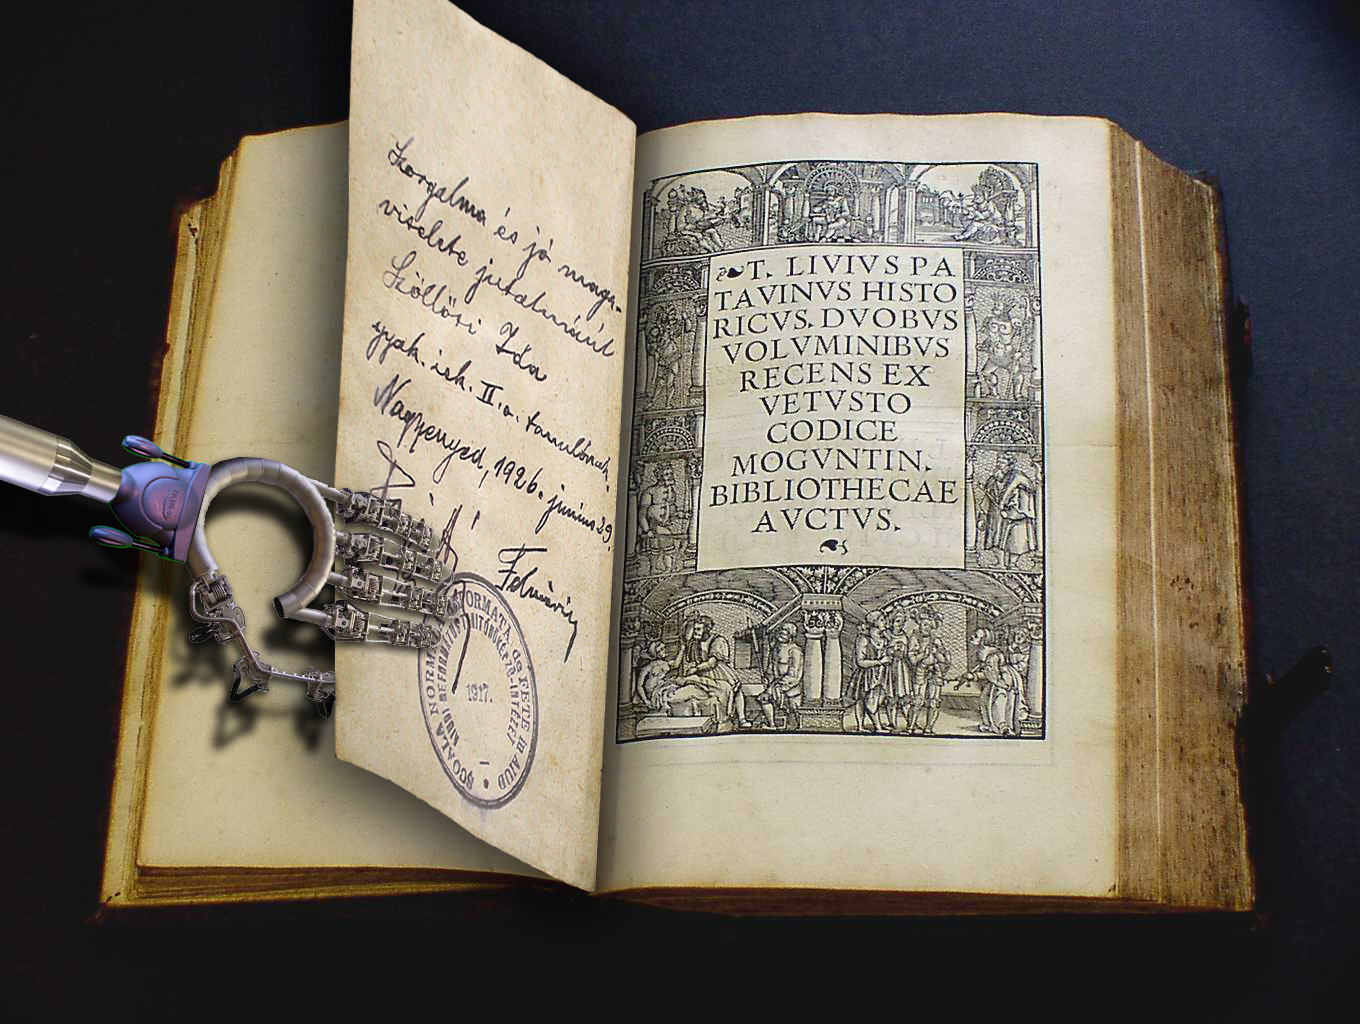 Szorgalma és jó maga-
viselete jutalmául
Szöllősi Ida
gyak. isk. II. o. tanulónak.
Nagyenyed, 1926. junius 29.
ȘCOALA NORMALĂ REFORMATĂ de FETE DIN AIUD
1917.
T. LIVIVS PA
TAVINVS HISTO
RICVS. DVOBVS
VOLVMINIBVS
RECENS EX
VETVSTO
CODICE
MOGVNTIN.
BIBLIOTHECAE
AVCTVS.